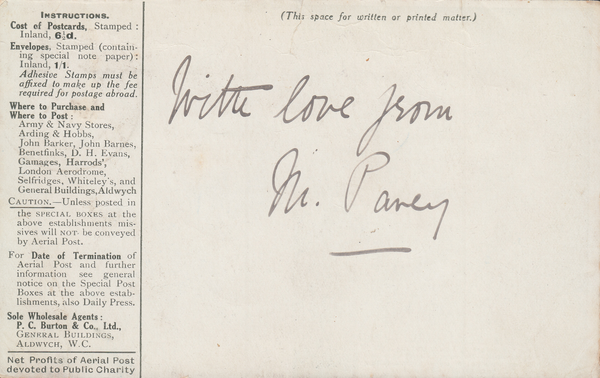 INSTRUCTIONS.
Cost of Postcards, Stamped:
Inland, 6½d.
Envelopes. Stamped (contain-
ing special note paper):
Inland, 1/1.
Adhesive Stamps must be
affixed to make up the fee
required for postage abroad.
Where to Purchase and
Where to Post:
Army & Navy Stores,
Arding & Hobbs,
John Barker, John Barnes,
Benetfinks, D. H. Evans,
Gamages, Harrods',
London Aerodrome,
Selfridges, Whiteley's, and
General Buildings, Aldwych
CAUTION.—Unless posted in
the SPECIAL BOXES at the
above establishments mis-
sives will NOT be conveyed
by Aerial Post.
For Date of Termination of
Aerial Post and further
information see general
notice on the Special Post
Boxes at the above estab-
lishments, also Daily Press.
Sole Wholesale Agents:
P. C. Burton & Co., Ltd.,
GENERAL BUILDINGS,
ALDWYCH, W.C.
Net Profits of Aerial Post
devoted to Public Charity
(This space for written or printed matter.)
With love from
M. Pavey